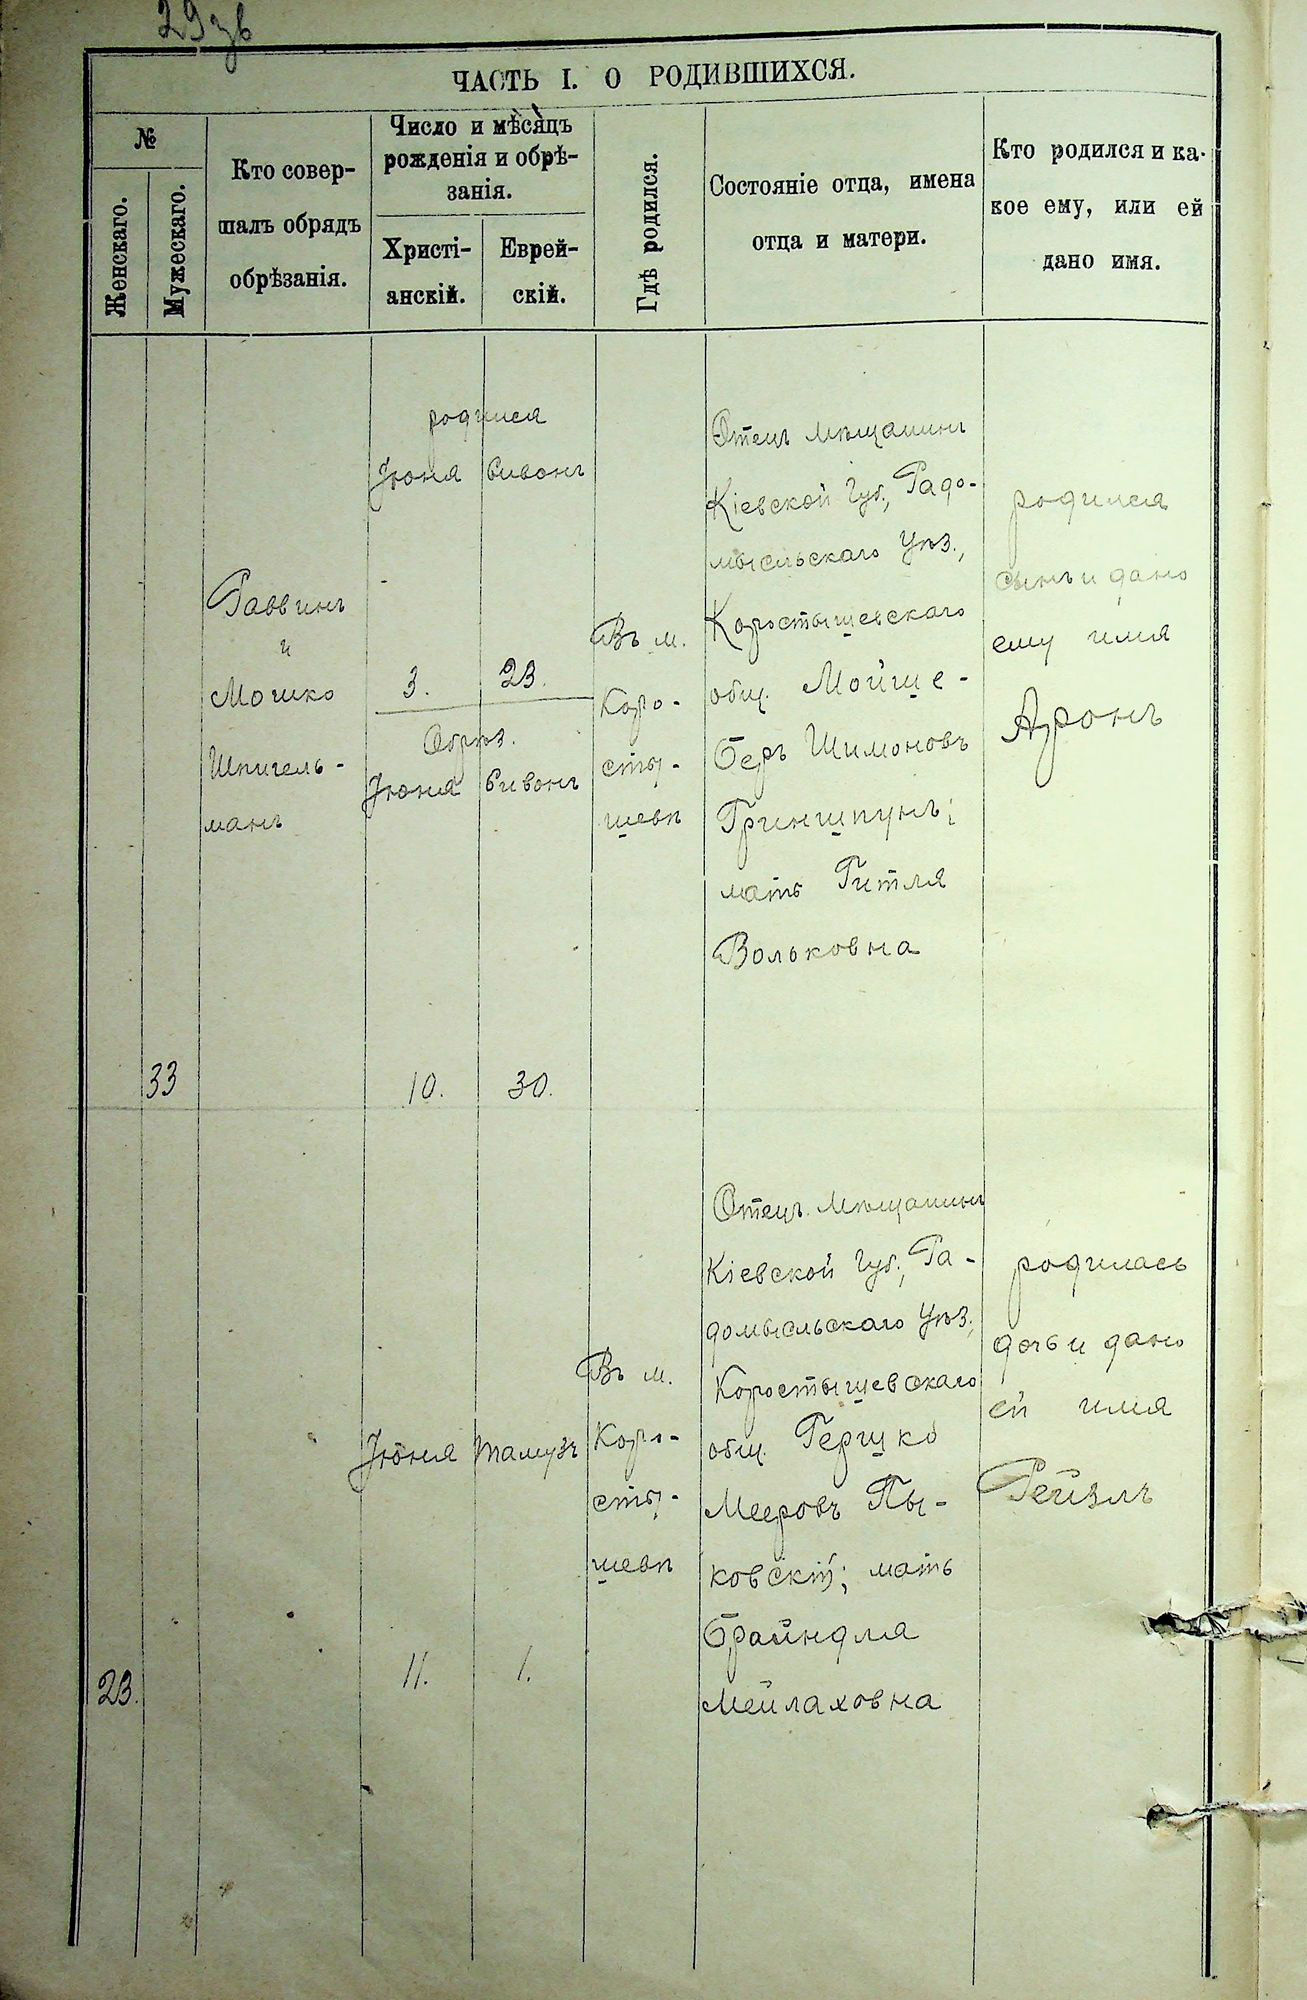 29 зв
ЧАСТЬ I. О РОДИВШИХСЯ.
№
Женскаго.
Мужескаго.
Кто совер-
шалъ обрядъ
обрѣзанія.
Число и мѣсяцъ
рожденія и обрѣ-
занія.
Христі-
анскій.
Еврей-
скій.
Гдѣ родился.
Состояніе отца, имена
отца и матери.
Кто родился и ка-
кое ему, или ей
дано имя.
33
Раввинъ
и
Мошко
Шпигель-
манъ
родился
Іюня Сивонъ
3. 23.
Обрѣз.
Іюня Сивонъ
10. 30.
Въ м.
Коро-
сты-
шевѣ
Отецъ мѣщанинъ
Кіевской Губ., Радо-
мысльскаго Уѣз.,
Коростышевскаго
общ. Мойше-
Беръ Шимоновъ
Гриншпунъ;
мать Гитля
Вольковна
родился
сынъ и дано
ему имя
Аронъ
23.
Іюня Тамузъ
11. 1.
Въ м.
Коро-
сты-
шевѣ
Отецъ мѣщанинъ
Кіевской Губ., Ра-
домысльскаго Уѣз.,
Коростышевскаго
общ. Гершко
Мееровъ Пы-
ковскій; мать
Брайндля
Мейлаховна
родилась
дочь и дано
ей имя
Рейзлъ